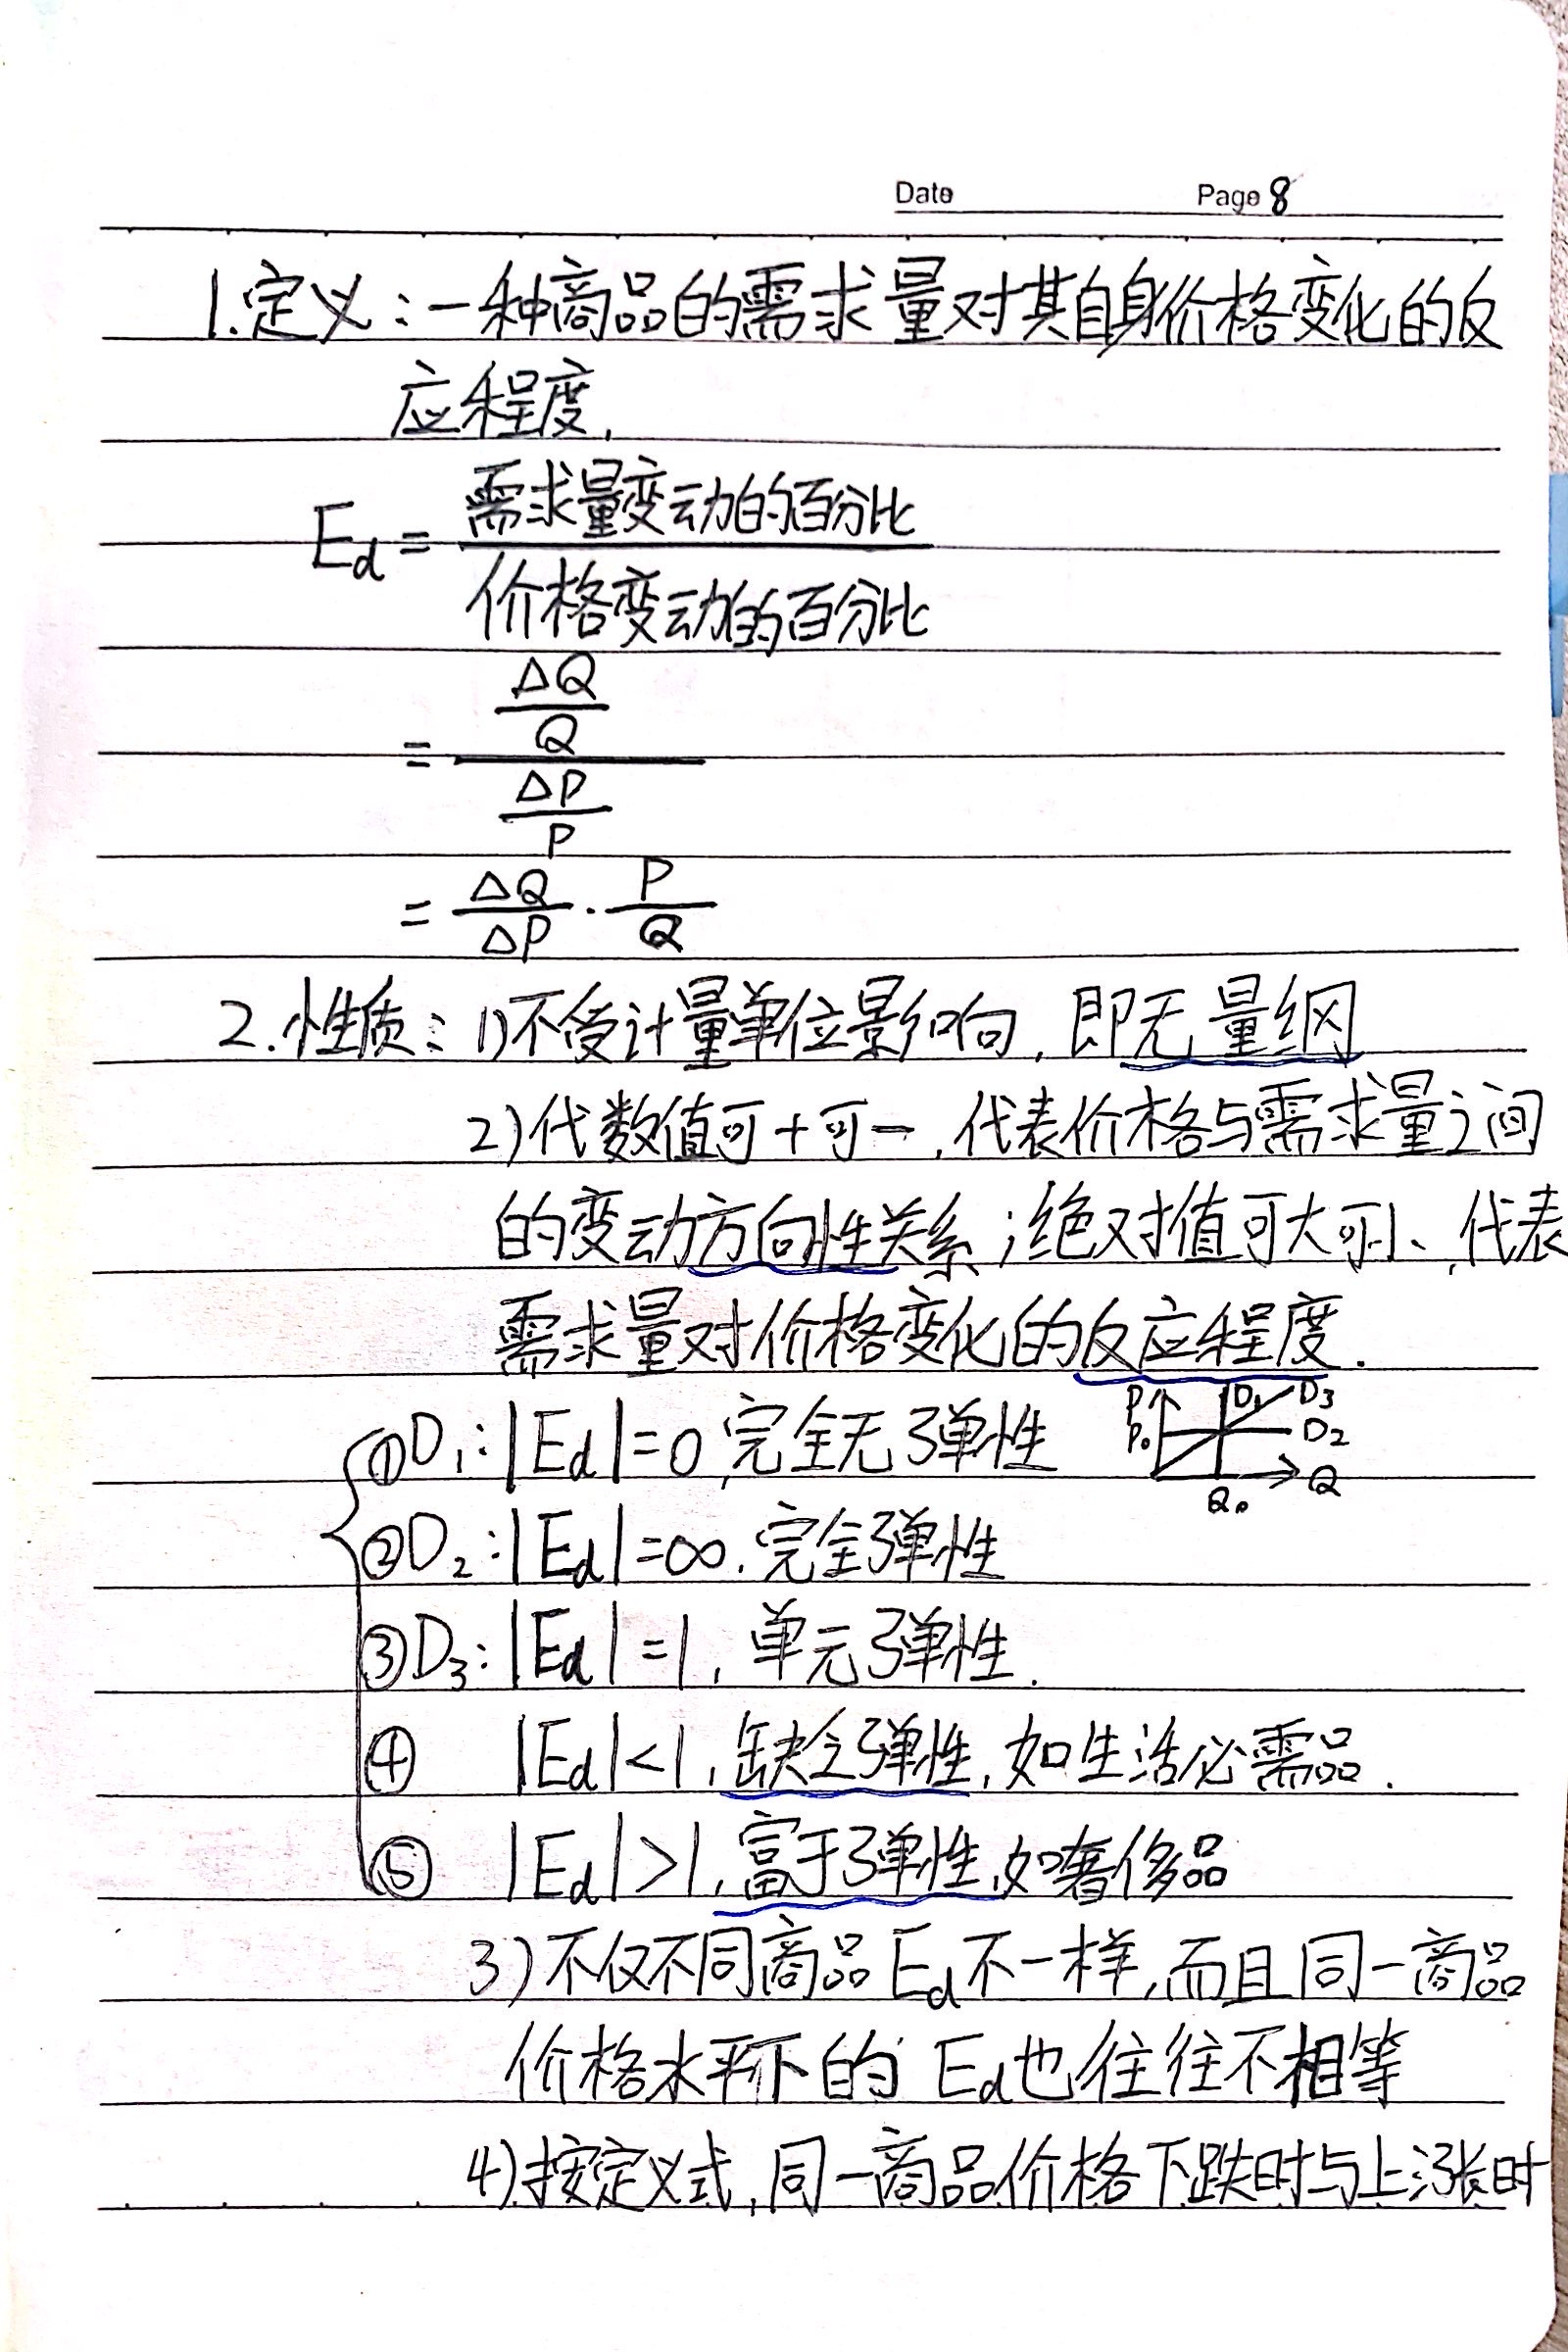 Date Page 8
1.定义:一种商品的需求量对其自身价格变化的反
应程度.
Ed = 需求量变动的百分比 / 价格变动的百分比
= (ΔQ/Q) / (ΔP/P)
= ΔQ/ΔP · P/Q
2.性质: 1)不受计量单位影响, 即无量纲
2)代数值可+可-, 代表价格与需求量之间
的变动方向性关系;绝对值可大可小, 代表
需求量对价格变化的反应程度.
P D1 D3
P0 D2
Q0 Q
①D1:|Ed|=0,完全无弹性
②D2:|Ed|=∞.完全弹性
③D3:|Ed|=1, 单元弹性.
④ |Ed|<1,缺乏弹性, 如生活必需品.
⑤ |Ed|>1,富于弹性,如奢侈品
3)不仅不同商品Ed不一样,而且同一商品
价格水平不同下的Ed也往往不相等
4)按定义式,同一商品价格下跌时与上涨时